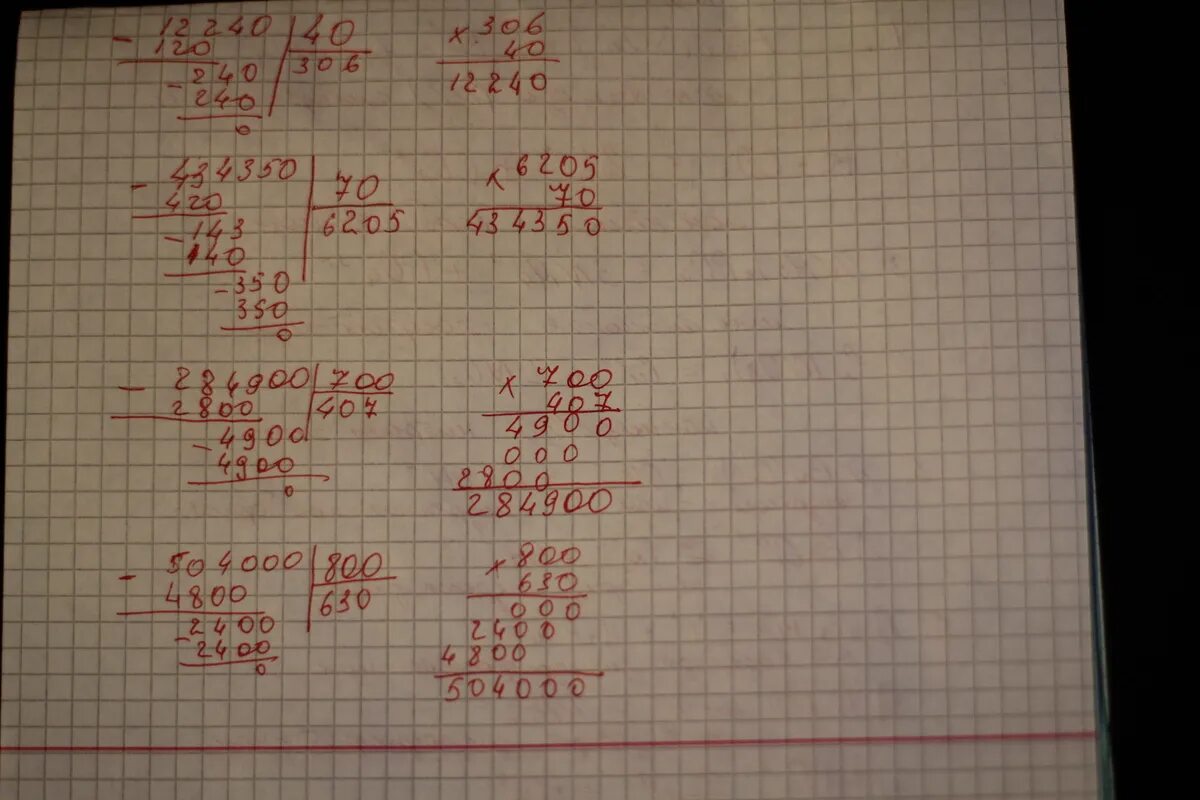 12240 | 40 × 306
- 120 | 306 40
- 240 12240
240
0
- 434350 | 70 × 6205
420 | 6205 70
- 143 434350
140
- 350
350
0
- 284900 | 700 × 700
2800 | 407 407
- 4900 4900
4900 000
0 2800
284900
- 504000 | 800 × 800
4800 | 630 630
- 2400 000
2400 2400
0 4800
504000